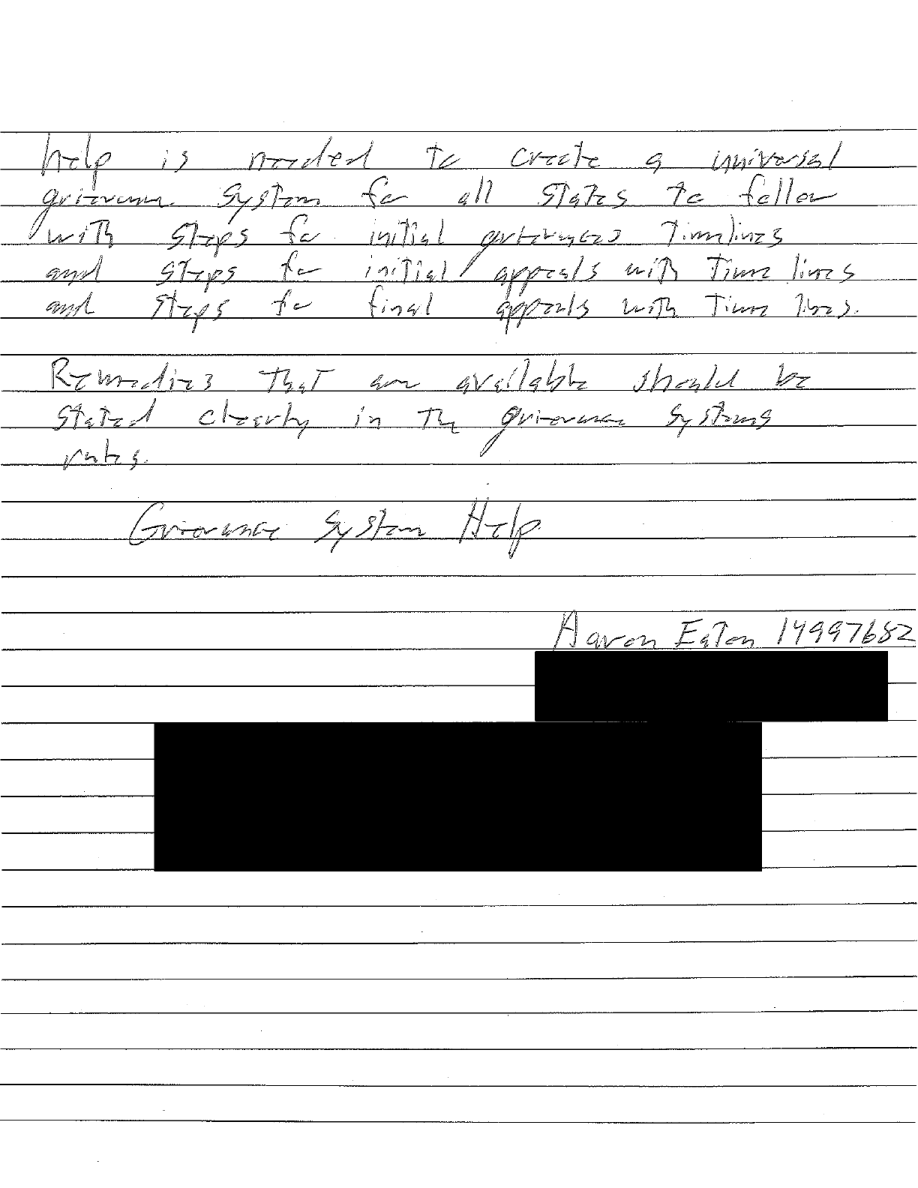 help is needed to create a universal
grievance system for all states to follow
with steps for initial grievances timelines
and steps for initial appeals with time lines
and steps for final appeals with time lines.
Remedies that are available should be
stated clearly in the grievance systems
rules.
Grievance System Help
Aaron Eaton 14997682